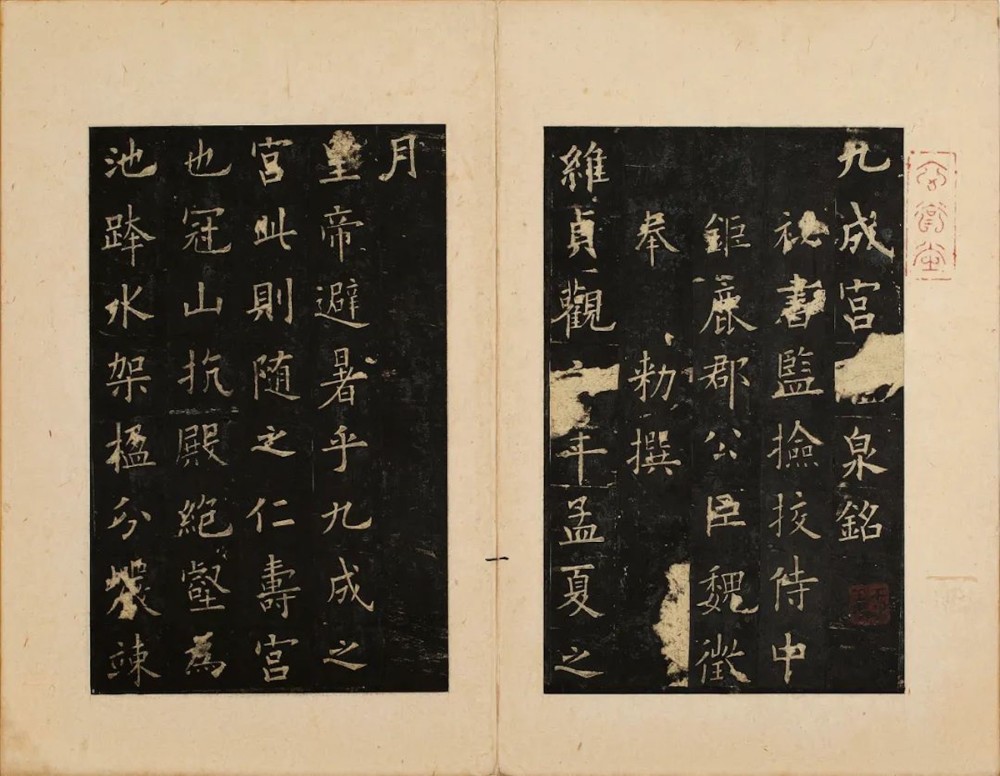 九成宮泉銘
秘書監撿挍侍中
鉅鹿郡公臣魏徵
奉 勑撰
維貞觀年孟夏之
月
皇帝避暑乎九成之
宮此則随之仁壽宮
也冠山抗殿絕壑為
池跨水架楹分巖竦